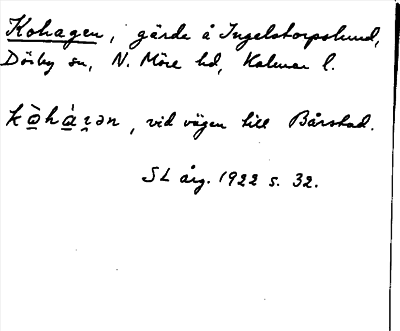 Kohagen, gärde å Ingelstorpslund,
Dörby sn, N. Möre hd, Kalmar l.
kò̱hà̱ɀən, vid vägen till Bårstad.
SL årg. 1922 s. 32.